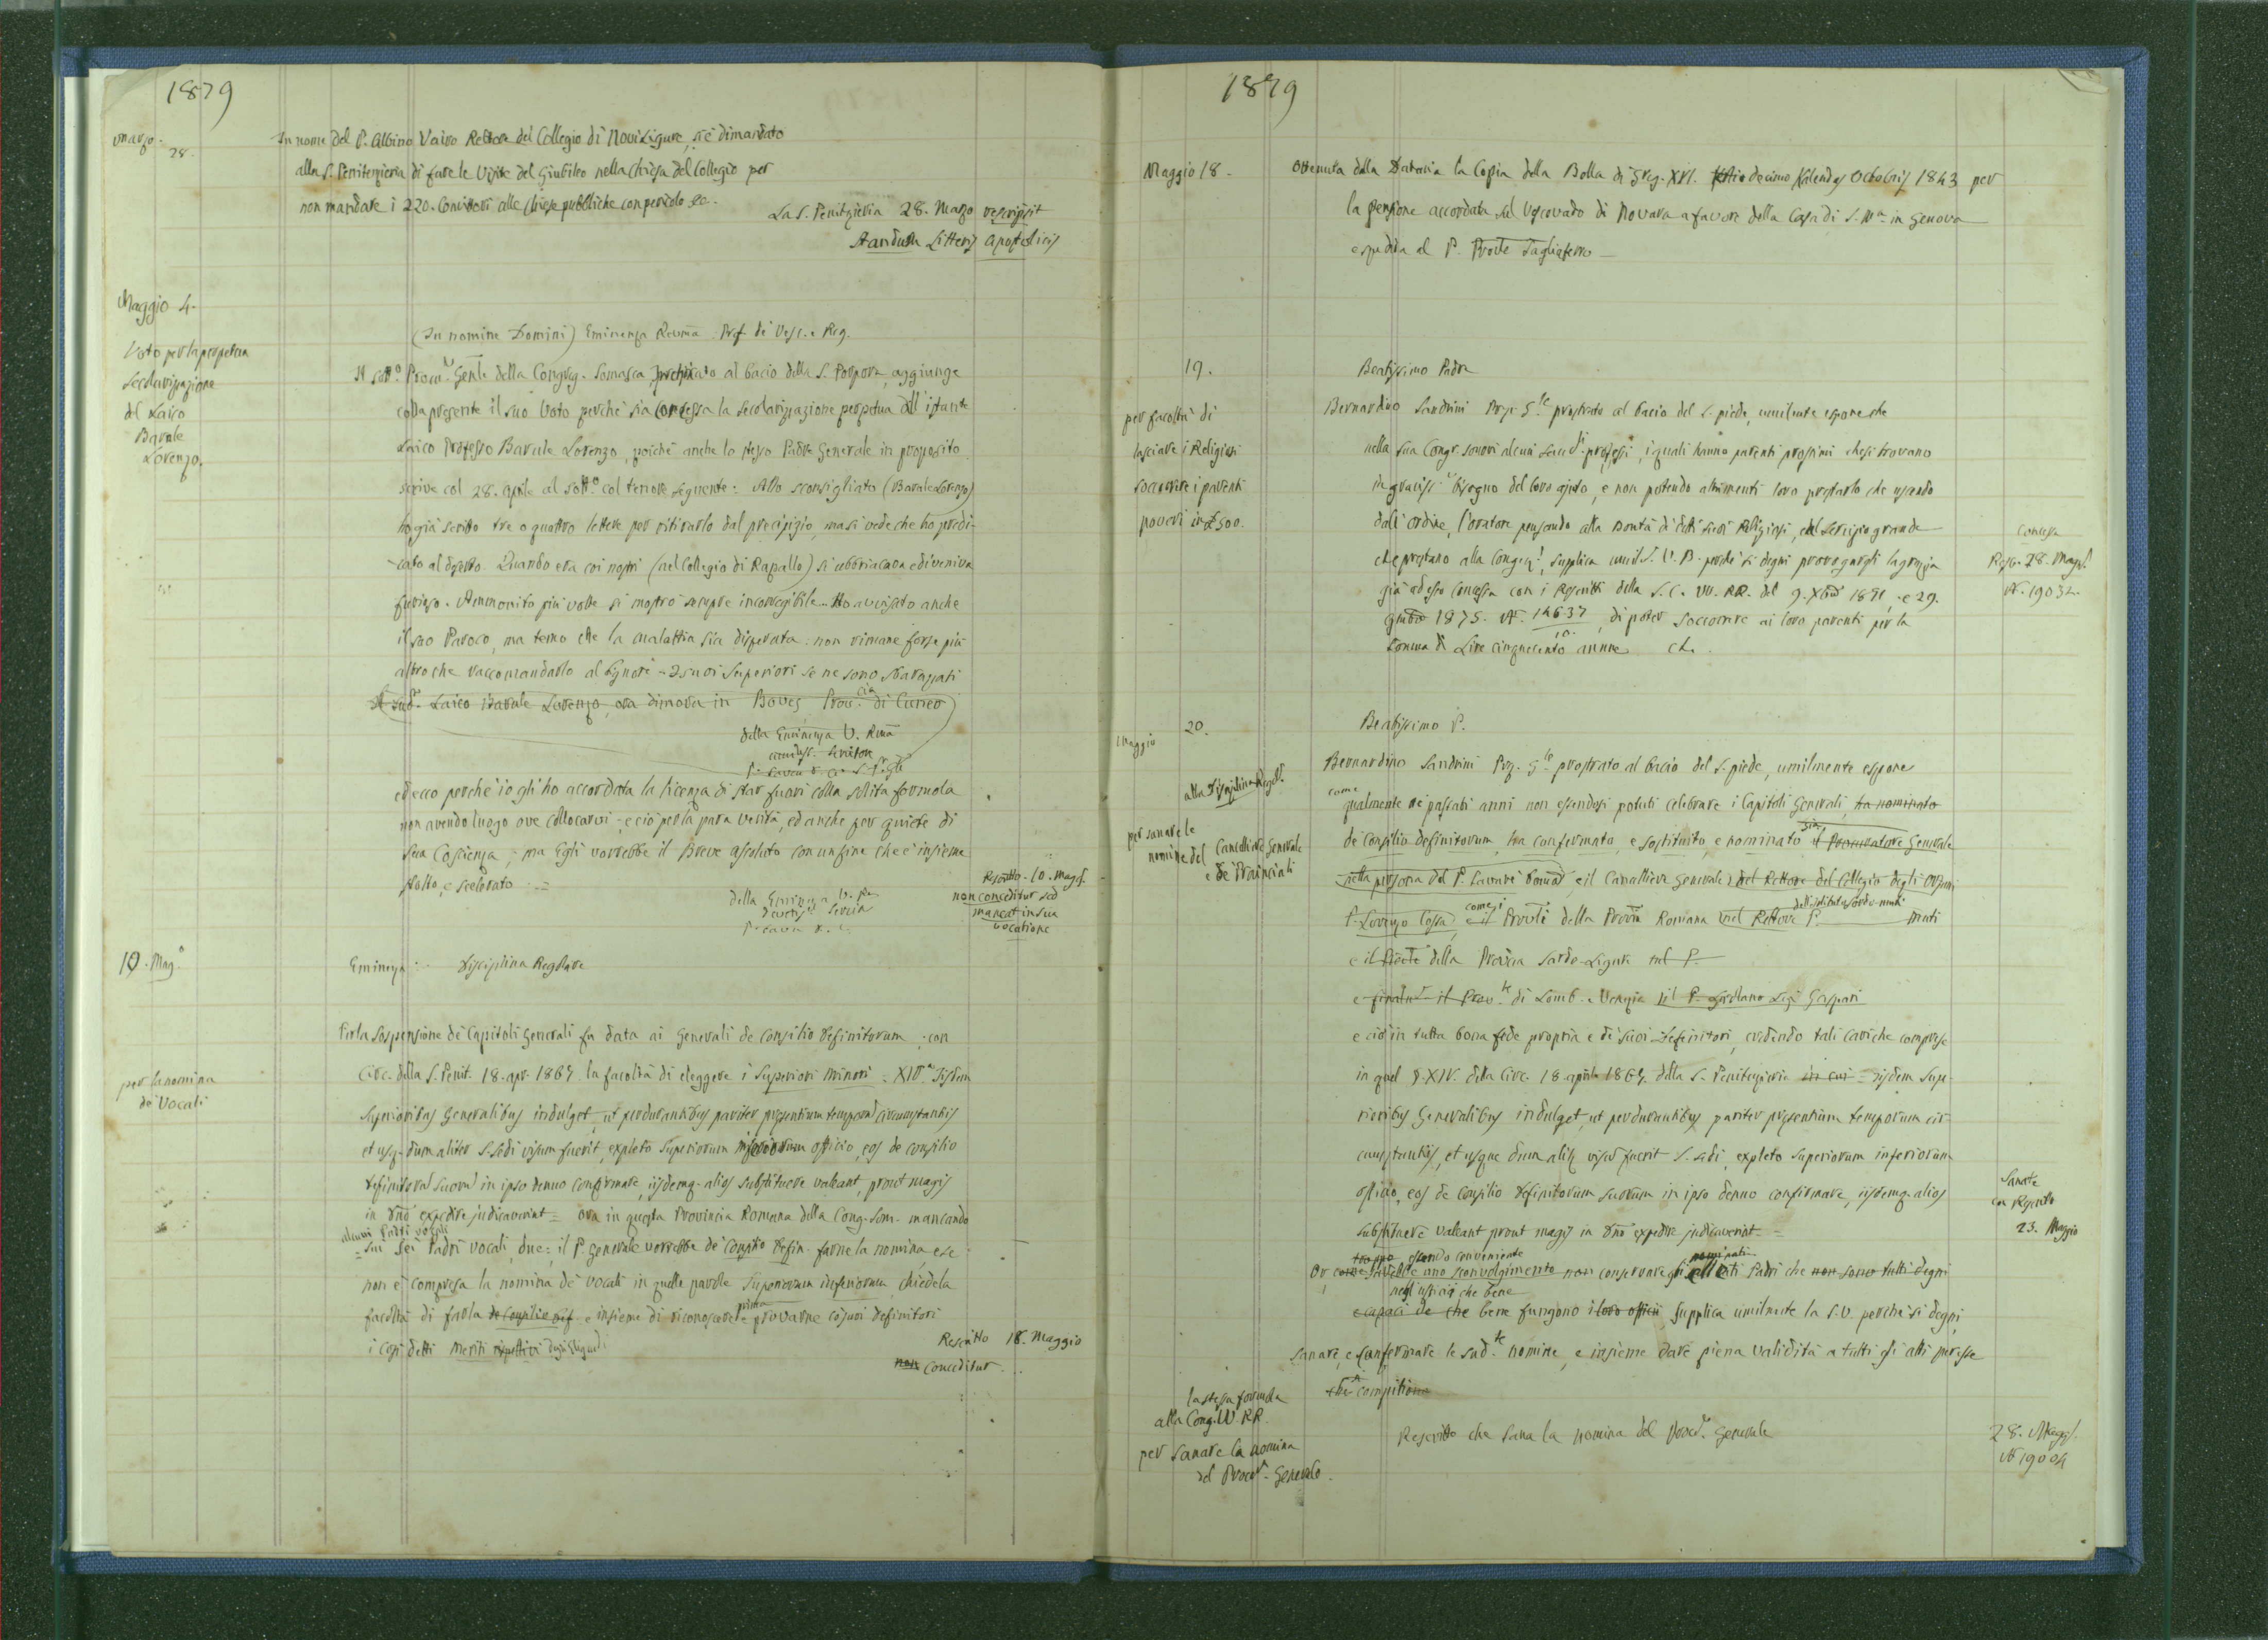 1879
Marzo. 28.
In nome del P. Albino Vairo Rettore del Collegio di Novi Ligure, si è dimandato
alla S. Penitenzieria di fare le Visite del Giubileo nella Chiesa del Collegio per
non mandare i 220. Convittori alle Chiese pubbliche con pericolo ec.
La S. Penitzieria 28. Marzo rescripsit
Standum Litteris Apostolicis
Maggio 4.
Voto per la perpetua
secolarizazione
del Laico
Barale
Lorenzo.
(In nomine Domini) Eminenza Revma. Pref. de' Vesc. e Reg.
Il sotto. Procu. Genle della Congreg. Somasca prostrato al bacio della S. Porpora, aggiunge
colla presente il suo Voto perchè sia concessa la secolarizzazione perpetua all'istante
Laico Professo Barale Lorenzo, poichè anche lo stesso Padre Generale in proposito
scrive col 28. Aprile al sotto. col tenore seguente: Allo sconsigliato (Barale Lorenzo)
ho già scritto tre o quattro lettere per ritirarlo dal precipizio, ma si vede che ho predi-
cato al deserto. Quando era coi nostri (nel Collegio di Rapallo) si ubbriacava e diveniva
furioso. Ammonito più volte si mostrò sempre incorregibile. Ho avvisato anche
il suo Paroco, ma temo che la malattia sia disperata: non rimane forse più
altro che raccomandarlo al Signore - I suoi Superiori se ne sono sbarazzati
Il sud. Laico Barale Lorenzo, ora dimora in Boves, Prov.cia di Cuneo
della Eminenza V. Rma
ed ecco perchè io gli ho accordata la licenza di star fuori colla solita formola
non avendo luogo ove collocarvi; e ciò per la pura verità, ed anche per quiete di
sua Coscienza; ma Egli vorrebbe il Breve assoluto con un fine che è insieme
stolto, e scelerato :=
della Eminenza V. Rma
Rescritto. 10. Magg.
non conceditur sed
maneat in sua
vocatione
10. Mag.o
Eminenza: Disciplina Regolare
per la nomina
de' Vocali
Per la sospensione de' Capitoli Generali fu data ai Generali de consilio Definitorum; con
Circ. della S. Penit. 18. apr. 1867 la facoltà di eleggere i Superiori Minori = XIV.o Iisdem
Superioribus Generalibus indulget, ut perdurantibus pariter presentium temporum circumstantiis
et usq. dum aliter S. Sedi visum fuerit, expleto Superiorum inferiorum officio, eos de consilio
Definitorum suorum in ipso denuo confirmare, iisdemq. alios substituere valeant, prout magis
in Dno expedire judicaverint = ora in questa Provincia Romana della Cong. Som. mancando
alcuni Padri vocali
= sui sei Padri vocali, due; il P. Generale vorrebbe de Consilio Defin. farne la nomina, e se
non è compresa la nomina de' vocali in quelle parole Superiorum inferiorum, chiede la
facoltà di farla de Consilio Def. e insieme di riconoscere e prima provarne co' suoi Definitori
i così detti meriti rispettivi degli Eligendi
Rescritto 18. Maggio
non Conceditur...
1879
Maggio 18.
Ottenuta dalla Dataria la Copia della Bolla di Greg. XVI. decimo Kalendas Octobris 1843 per
la pensione accordata sul Vescovado di Novara a favore della Casa di S. M.a in Genova
e spedita al P. Provle Tagliaferro
19.
per facoltà di
lasciare i Religiosi
soccorrere i parenti
poveri in £ 500.
Beatissimo Padre
Bernardino Sandrini Prep. G.le prostrato al bacio del S. piede, umilmente espone che
nella sua Congr. sonovi alcuni Sacerdi. professi, i quali hanno parenti prossimi che si trovano
in gravissi.i bisogno del loro ajuto, e non potendo altrimenti loro prestarlo che uscendo
dall'ordine, l'oratore pensando alla bontà di detti suoi Religiosi, e al servizio grande
che prestano alla Congreg., supplica umil. S. V. B. perchè si degni prorogargli la grazia
già adesso concessa con i Rescritti della S. C. VV. RR. del 9. Xbre 1871, e 29.
giugno 1875. N. 14637, di poter soccorrere ai loro parenti per la
somma di Lire cinquecento annue ch.
Concessa
Resc. 28. Magg.
N. 19032.
Maggio 20.
alla Disciplina Regol.
per sanare le
nomine del Cancelliere Generale
e de' Provinciali
Beatissimo P.
Bernardino Sandrini Prep. G.le prostrato al bacio del S. piede, umilmente espone
come
qualmente ne' passati anni non essendosi potuti celebrare i Capitoli Generali, ha nominato
de consilio definitorum, ha confermato, e sostituito, e nominato sia il Procuratore Generale
nella persona del P. Savarè e il Cancelliere Generale nel Rettore del Collegio degli Orfani
dell'istituto Sordo-muti
P. Lorenzo Cossa, come i e il Provli della Provia Romana nel Rettore P. muti
e il Provle della Provia Sardo-Ligure nel P.
e finalm. il Prov.le di Lomb. e Venezia nel P. Girolamo Luigi Gaspari
e ciò in tutta bona fede propria e de' suoi Definitori, credendo tali cariche comprese
in quel §. XIV. della Circ. 18 aprile 1867. della S. Penitenzieria in cui = iisdem Supe-
rioribus Generalibus indulget, ut perdurantibus pariter presentium temporum cir-
cumstantiis, et usque dum aliq. visum fuerit S. Sedi, expleto Superiorum inferiorum
officio, eos de consilio Definitorum suorum in ipso denuo confirmare, iisdemq. alios
substituere valeant prout magis in Dno expedire judicaverint =
Sanate
con Rescritto
23. Maggio
troppo essendo conveniente nominati
Or, come sarebbe uno sconvolgimento non conservare gli eletti Padri che non sono tutti degni
negli ufficii che bene
e capaci de che bene fungono i loro officii, supplica umilmente la S.V. perchè si degni
sanare, e confermare le sud.te nomine, e insieme dare piena validità a tutti gli atti
la stessa formola
alla Cong. VV. RR.
per sanare la nomina
del Procur. Generale.
Rescritto che sana la nomina del Procur. Generale
28. Magg.
N. 19004